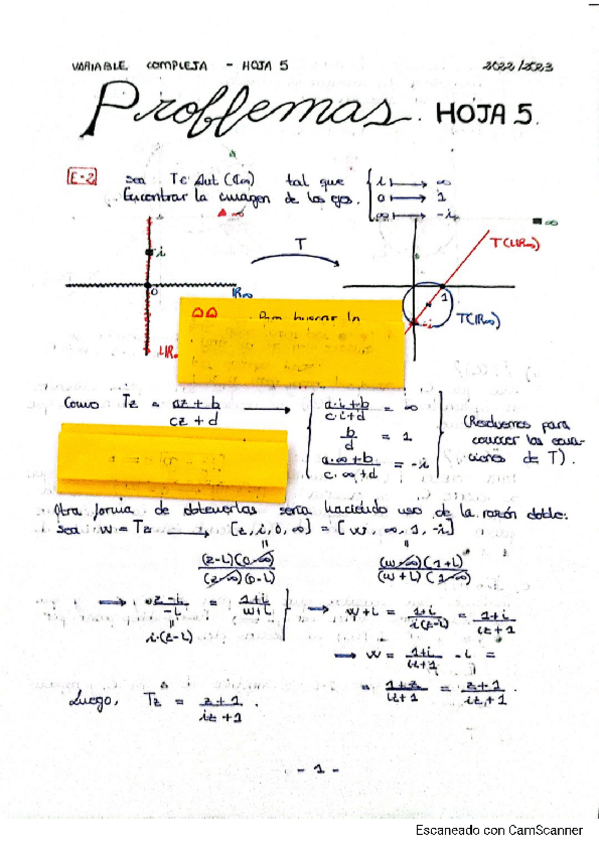 VARIABLE COMPLEJA - HOJA 5 2022/2023
Problemas. HOJA 5.
E-2 Sea T ∈ Aut(ℂ∞) tal que
Encontrar la imagen de los ejes.
i ⟼ ∞
0 ⟼ 1
∞ ⟼ -i
∞ ∞
T
i 0 ℝ∞ iℝ∞
1 -i T(iℝ∞) T(ℝ∞)
Para buscar la
Como Tz = az + b / cz + d ⟶
a·i+b / c·i+d = ∞
b / d = 1
a·∞+b / c·∞+d = -i
(Resolvemos para
conocer las ecua-
ciones de T).
Otra forma de obtenerlas sería haciendo uso de la razón doble:
Sea w = Tz ⟶ [z, i, 0, ∞] = [w, ∞, 1, -i]
= =
(z-i)(0-∞) / (z-∞)(0-i) (w-∞)(1+i) / (w+i)(1-∞)
⟶ z-i / -i = 1+i / w+i ⟶ w+i = 1+i / i(z-i) = 1+i / iz+1
= i·(z-i)
⟶ w = 1+i / iz+1 - i =
= 1+z / iz+1 = z+1 / iz+1.
Luego, Tz = z+1 / iz+1.
- 1 -
Escaneado con CamScanner